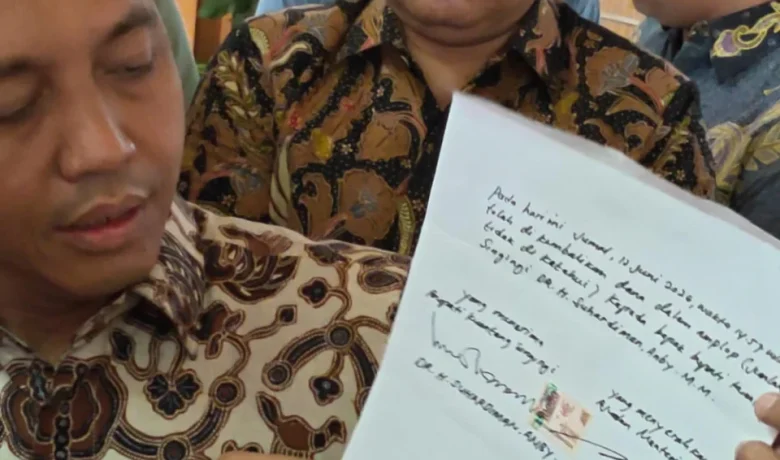 Pada hari ini Jumat, 12 Juni 2026, waktu 14.57
telah di kembalikan dana dalam amplop (
tidak di ketahui) kepada bapak bupati
Singingi DR. H. Suhardiman, Amby. M.M.
yang menerima
Bupati Kuantang Singingi
DR. H. SUHARDIMAN. AMBY.
yang menyerahkan